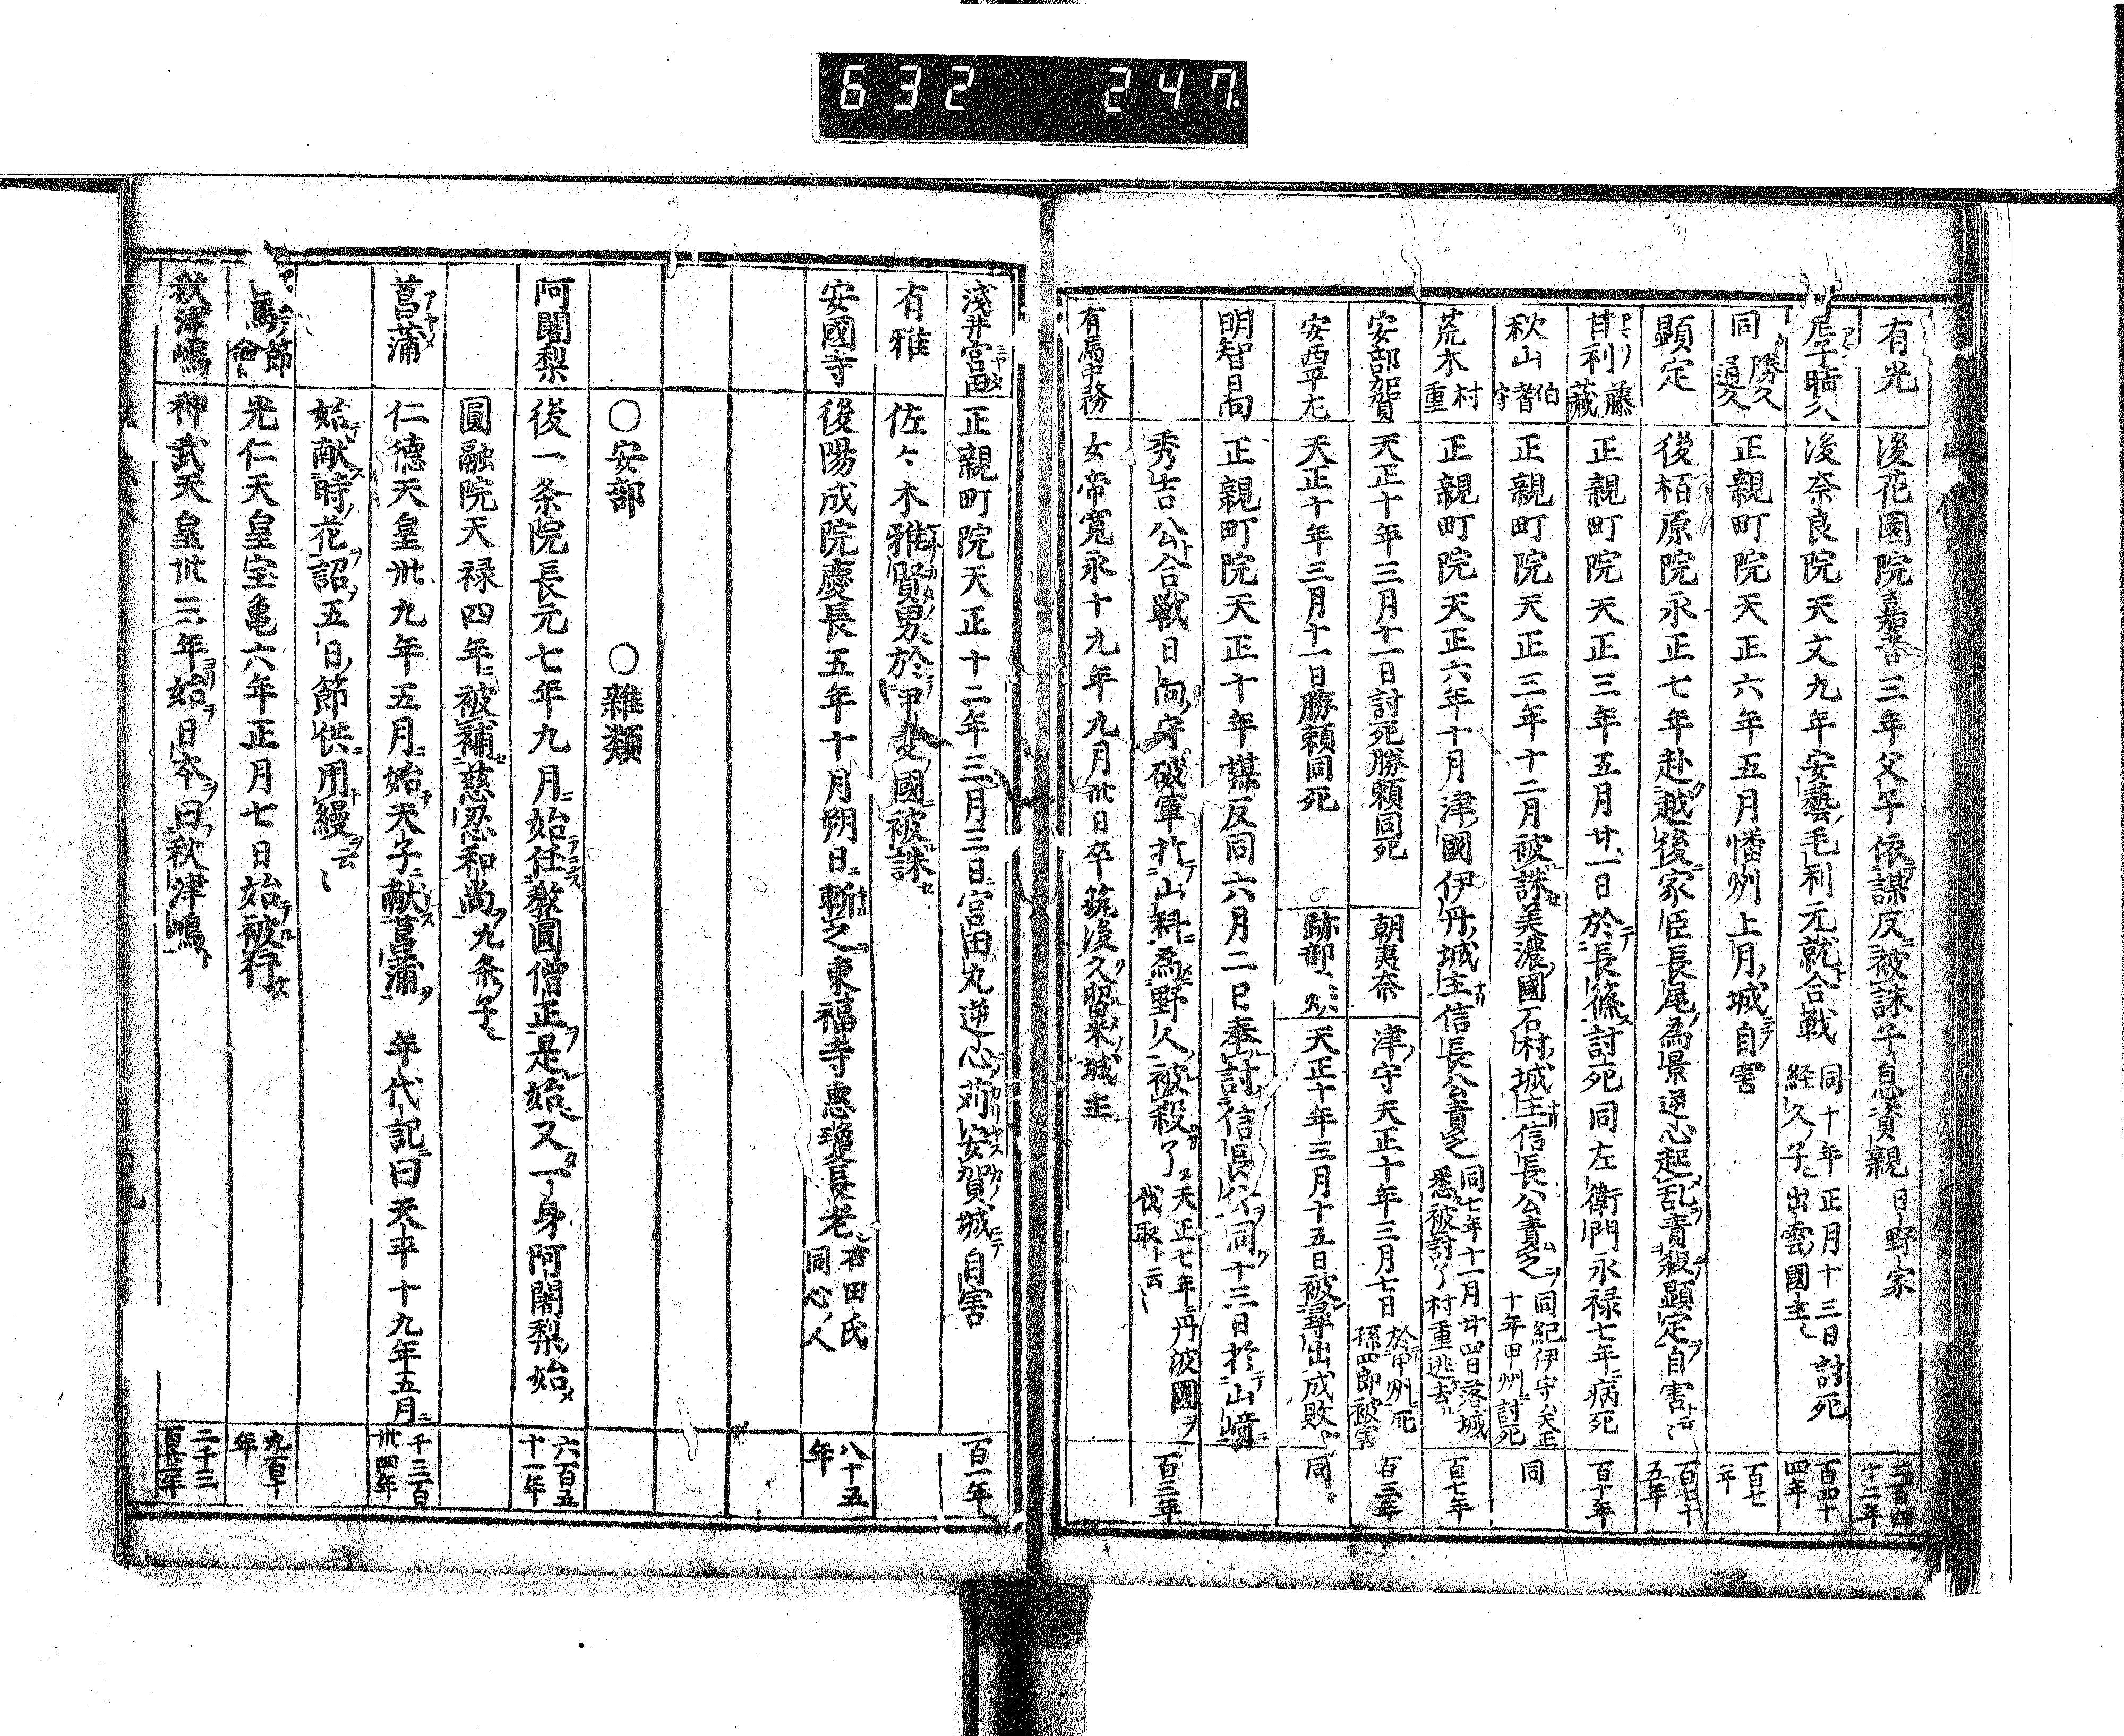 632 247
有光 後花園院嘉吉三年父子依謀反被誅子息資親 日野家 二百四十二年
尼子晴久 後奈良院天文九年安藝毛利元就合戦 同十年正月十三日討死 経久子 出雲國主 百四十四年
同 勝久 通久 正親町院天正六年五月幡州上月城自害 百七年
顕定 後柏原院永正七年赴越後家臣長尾為景逆心起乱責殺顕定自害 百七十五年
甘利 藤蔵 正親町院天正三年五月廿一日於長篠討死同左衛門永禄七年病死 百十年
秋山 伯耆守 正親町院天正三年十二月被誅美濃國石村城主信長公責之 同紀伊守天正十年甲州討死 同
荒木 村重 正親町院天正六年十月津國伊丹城主信長公責之 同七年十一月廿四日落城 悉被討了村重逃去 百七年
安部加賀 天正十年三月十一日討死勝頼同死 朝夷奈 津守天正十年三月七日 於甲州死 孫四郎被害 百三年
安西平左 天正十年三月十一日勝頼同死 跡部 天正十年三月十五日被尋出成敗 同
明智日向 正親町院天正十年謀反同六月二日奉討信長公同十三日於山﨑
秀吉公合戦日向守破軍於山科為野人被殺了 天正七年丹波國伐取云 百三年
有馬中務 女帝寛永十九年九月卅日卒筑後久留米城主
浅井宮田 正親町院天正十二年三月三日宮田丸逆心苅安賀城自害 百一年
有雅 佐々木雅賢男於甲斐國被誅
安國寺 後陽成院慶長五年十月朔日斬之東福寺惠瓊長老 石田氏同心人 八十五年
○安部 ○雑類
阿闍梨 後一条院長元七年九月始任教圓僧正是始又一身阿闍梨始 六百五十一年
圓融院天禄四年被補慈忍和尚九条子
菖蒲 仁徳天皇卅九年五月始天子献菖蒲 年代記曰天平十九年五月 千三百卅四年
始献詩花詔五日節供用縵云
馬節會 光仁天皇宝亀六年正月七日始被行 九百十年
秋津嶋 神武天皇卅三年始日本曰秋津嶋 二千三百